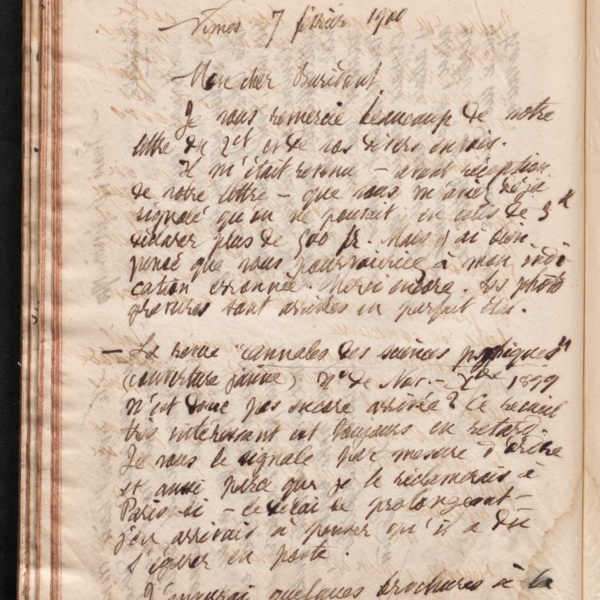 Nimes 7 février 1900
Mon cher
Je vous remercie beaucoup de votre
lettre du 2 ct et de vos divers envois.
Il m'était revenu – avant réception
de votre lettre – que vous m'aviez déjà
signalé qu'on ne pouvait en colis de 3 k
déclarer plus de 500 fr. Mais j'ai bien
pensé que vous pourvoiriez à mon indi
cation erronnée. Merci encore. Les photo
gravures sont arrivées en parfait état.
– La revue "Annales des sciences psychiques"
(couverture jaune) N° de Nov. – Xbre 1899
n'est donc pas encore arrivée? Ce recueil
très intéressant est toujours en retard.
Je vous le signale par mesure d'ordre
et aussi parce que je le réclamerais à
Paris si – ce retard se prolongeant –
j'en arrivais à penser qu'il a dû
s'égarer en poste.
J'aurai quelques brochures à la